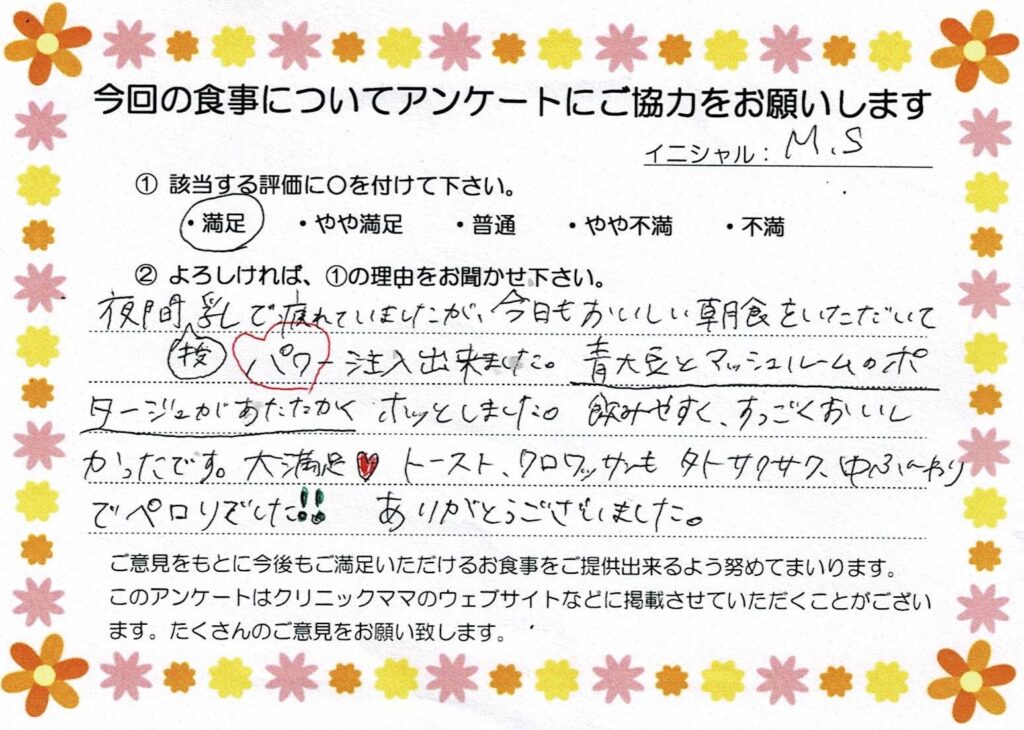 今回の食事についてアンケートにご協力をお願いします
イニシャル： M.S
① 該当する評価に〇を付けて下さい。
・満足 ・やや満足 ・普通 ・やや不満 ・不満
② よろしければ、①の理由をお聞かせ下さい。
夜間授乳で疲れていましたが、今日もおいしい朝食をいただいて
パワー注入出来ました。青大豆とマッシュルームのポ
タージュがあたたかく ホッとしました。飲みやすく、すっごくおいし
かったです。大満足♥ トースト、クロワッサンも 外サクサク、中ふんわり
でペロリでした!! ありがとうございました。
ご意見をもとに今後もご満足いただけるお食事をご提供出来るよう努めてまいります。
このアンケートはクリニックママのウェブサイトなどに掲載させていただくことがござい
ます。たくさんのご意見をお願い致します。